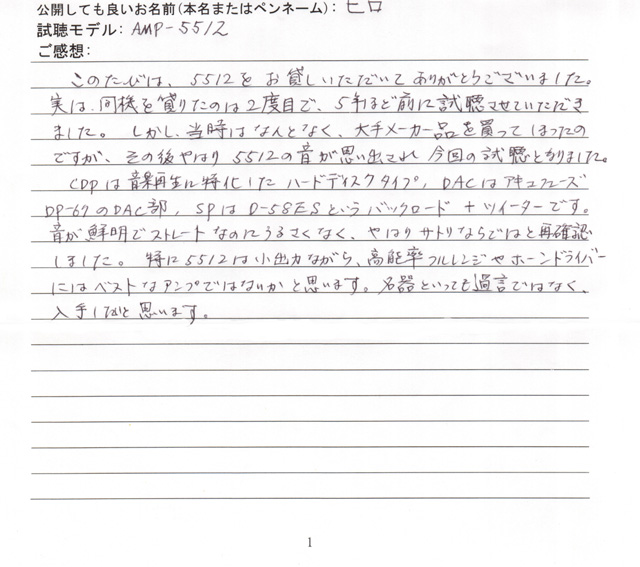 公開しても良いお名前(本名またはペンネーム): ヒロ
試聴モデル: AMP-5512
ご感想:
このたびは、5512をお貸しいただいてありがとうございました。
実は、同機を貸りたのは2度目で、5年ほど前に試聴させていただき
ました。しかし、当時はなんとなく、大手メーカー品を買ってしまったの
ですが、その後やはり5512の音が思い出され今回の試聴となりました。
CDPは音楽再生に特化したハードディスクタイプ, DACはアキュフェーズ
DP-67のDAC部, SPはD-58ESというバックロード+ツイーターです。
音が鮮明でストレートなのにうるさくなく、やはりサトリならではと再確認
しました。特に5512は小出力ながら、高能率フルレンジやホーンドライバー
にはベストなアンプではないかと思います。名器といっても過言ではなく、
入手したいと思います。
1